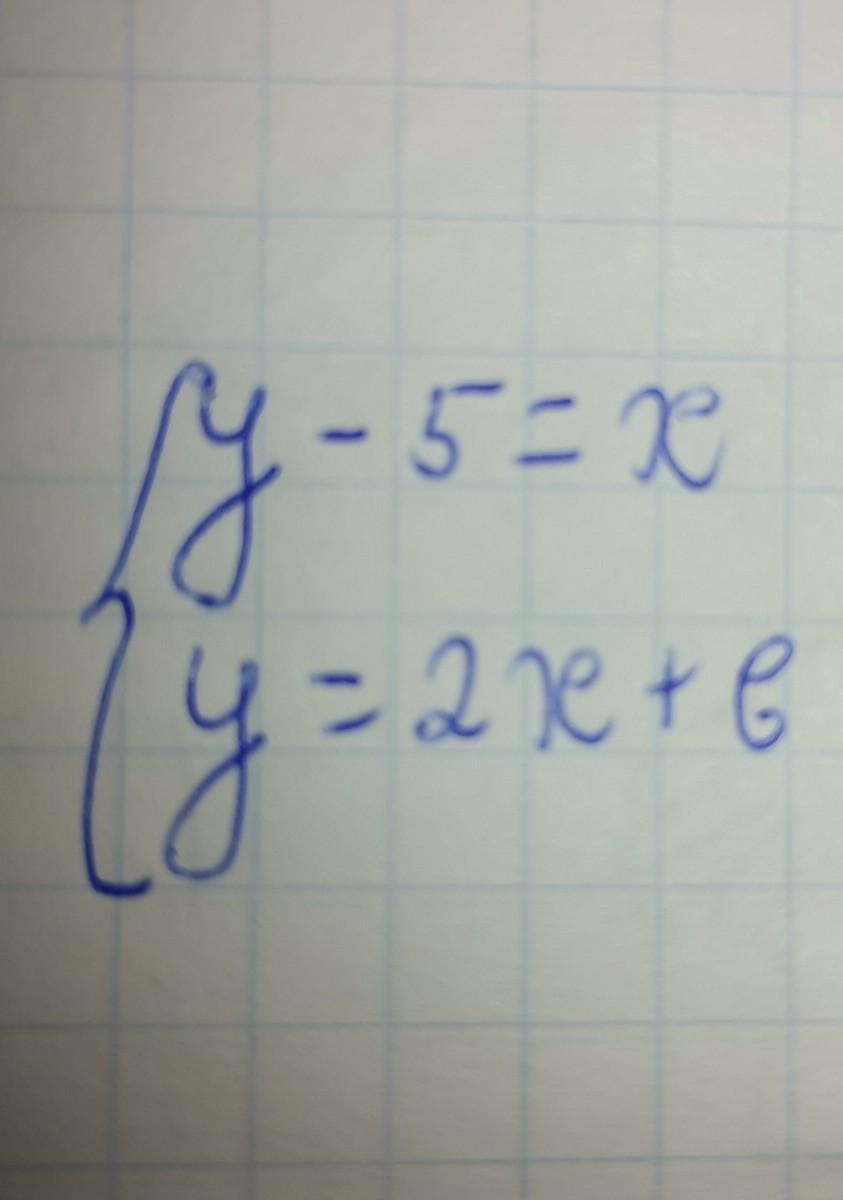 y - 5 = x
y = 2x + 6